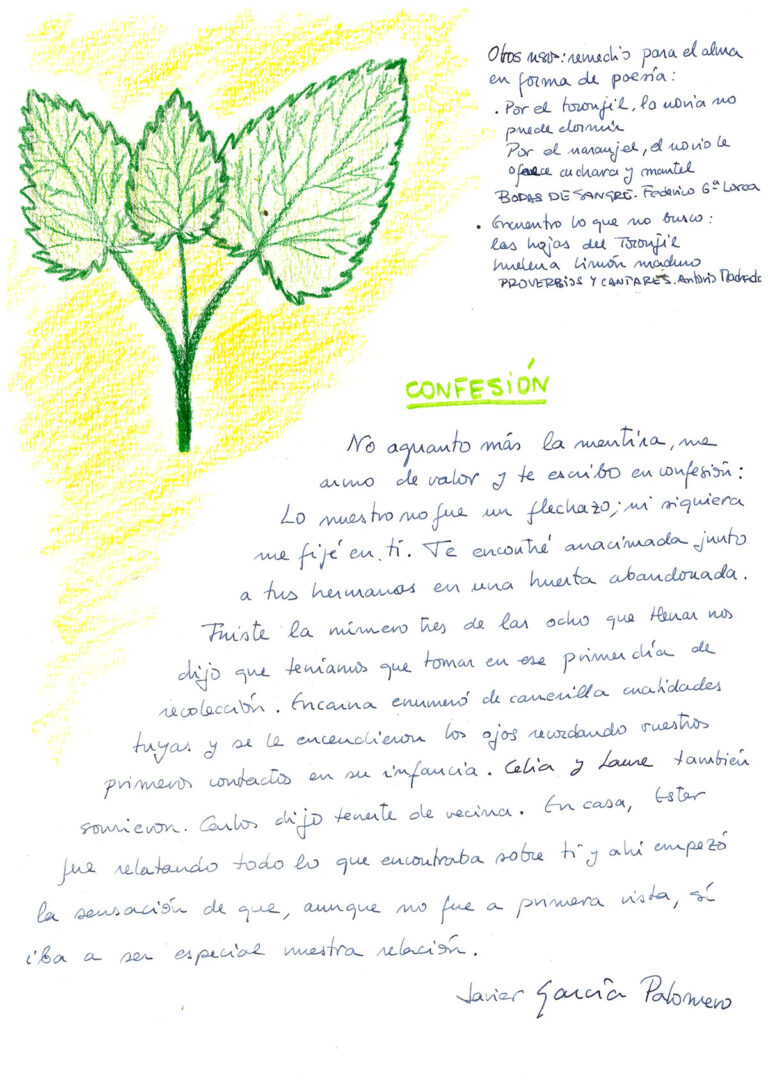 Otros usos: remedio para el alma
en forma de poesía:
. Por el toronjil, la novia no
puede dormir
Por el naranjel, el novio le
ofrece cuchara y mantel
BODAS DE SANGRE. Federico Gª Lorca
. Encuentro lo que no busco:
las hojas del Toronjil
huelen a limón maduro
PROVERBIOS Y CANTARES. Antonio Machado
CONFESIÓN
No aguanto más la mentira, me
armo de valor y te escribo en confesión:
Lo nuestro no fue un flechazo; ni siquiera
me fijé en ti. Te encontré anacimada junto
a tus hermanas en una huerta abandonada.
Fuiste la número tres de las ocho que Henar nos
dijo que teníamos que tomar en ese primer día de
recolección. Encarna enumeró de carrerilla cualidades
tuyas y se le encendieron los ojos recordando vuestros
primeros contactos en su infancia. Celia y Laura también
sonrieron. Carlos dijo tenerte de vecina. En casa, Ester
fue relatando todo lo que encontraba sobre ti y ahí empezó
la sensación de que, aunque no fue a primera vista, sí
iba a ser especial nuestra relación.
Javier García Palomero